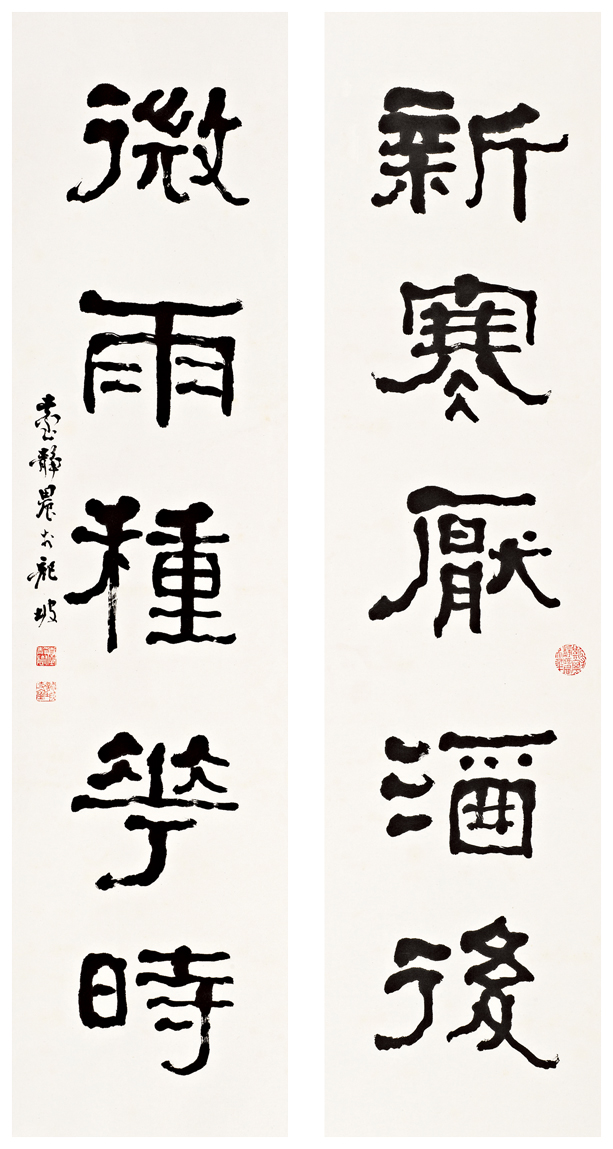 新寒厭酒後
微雨種華時
臺靜農於龍坡